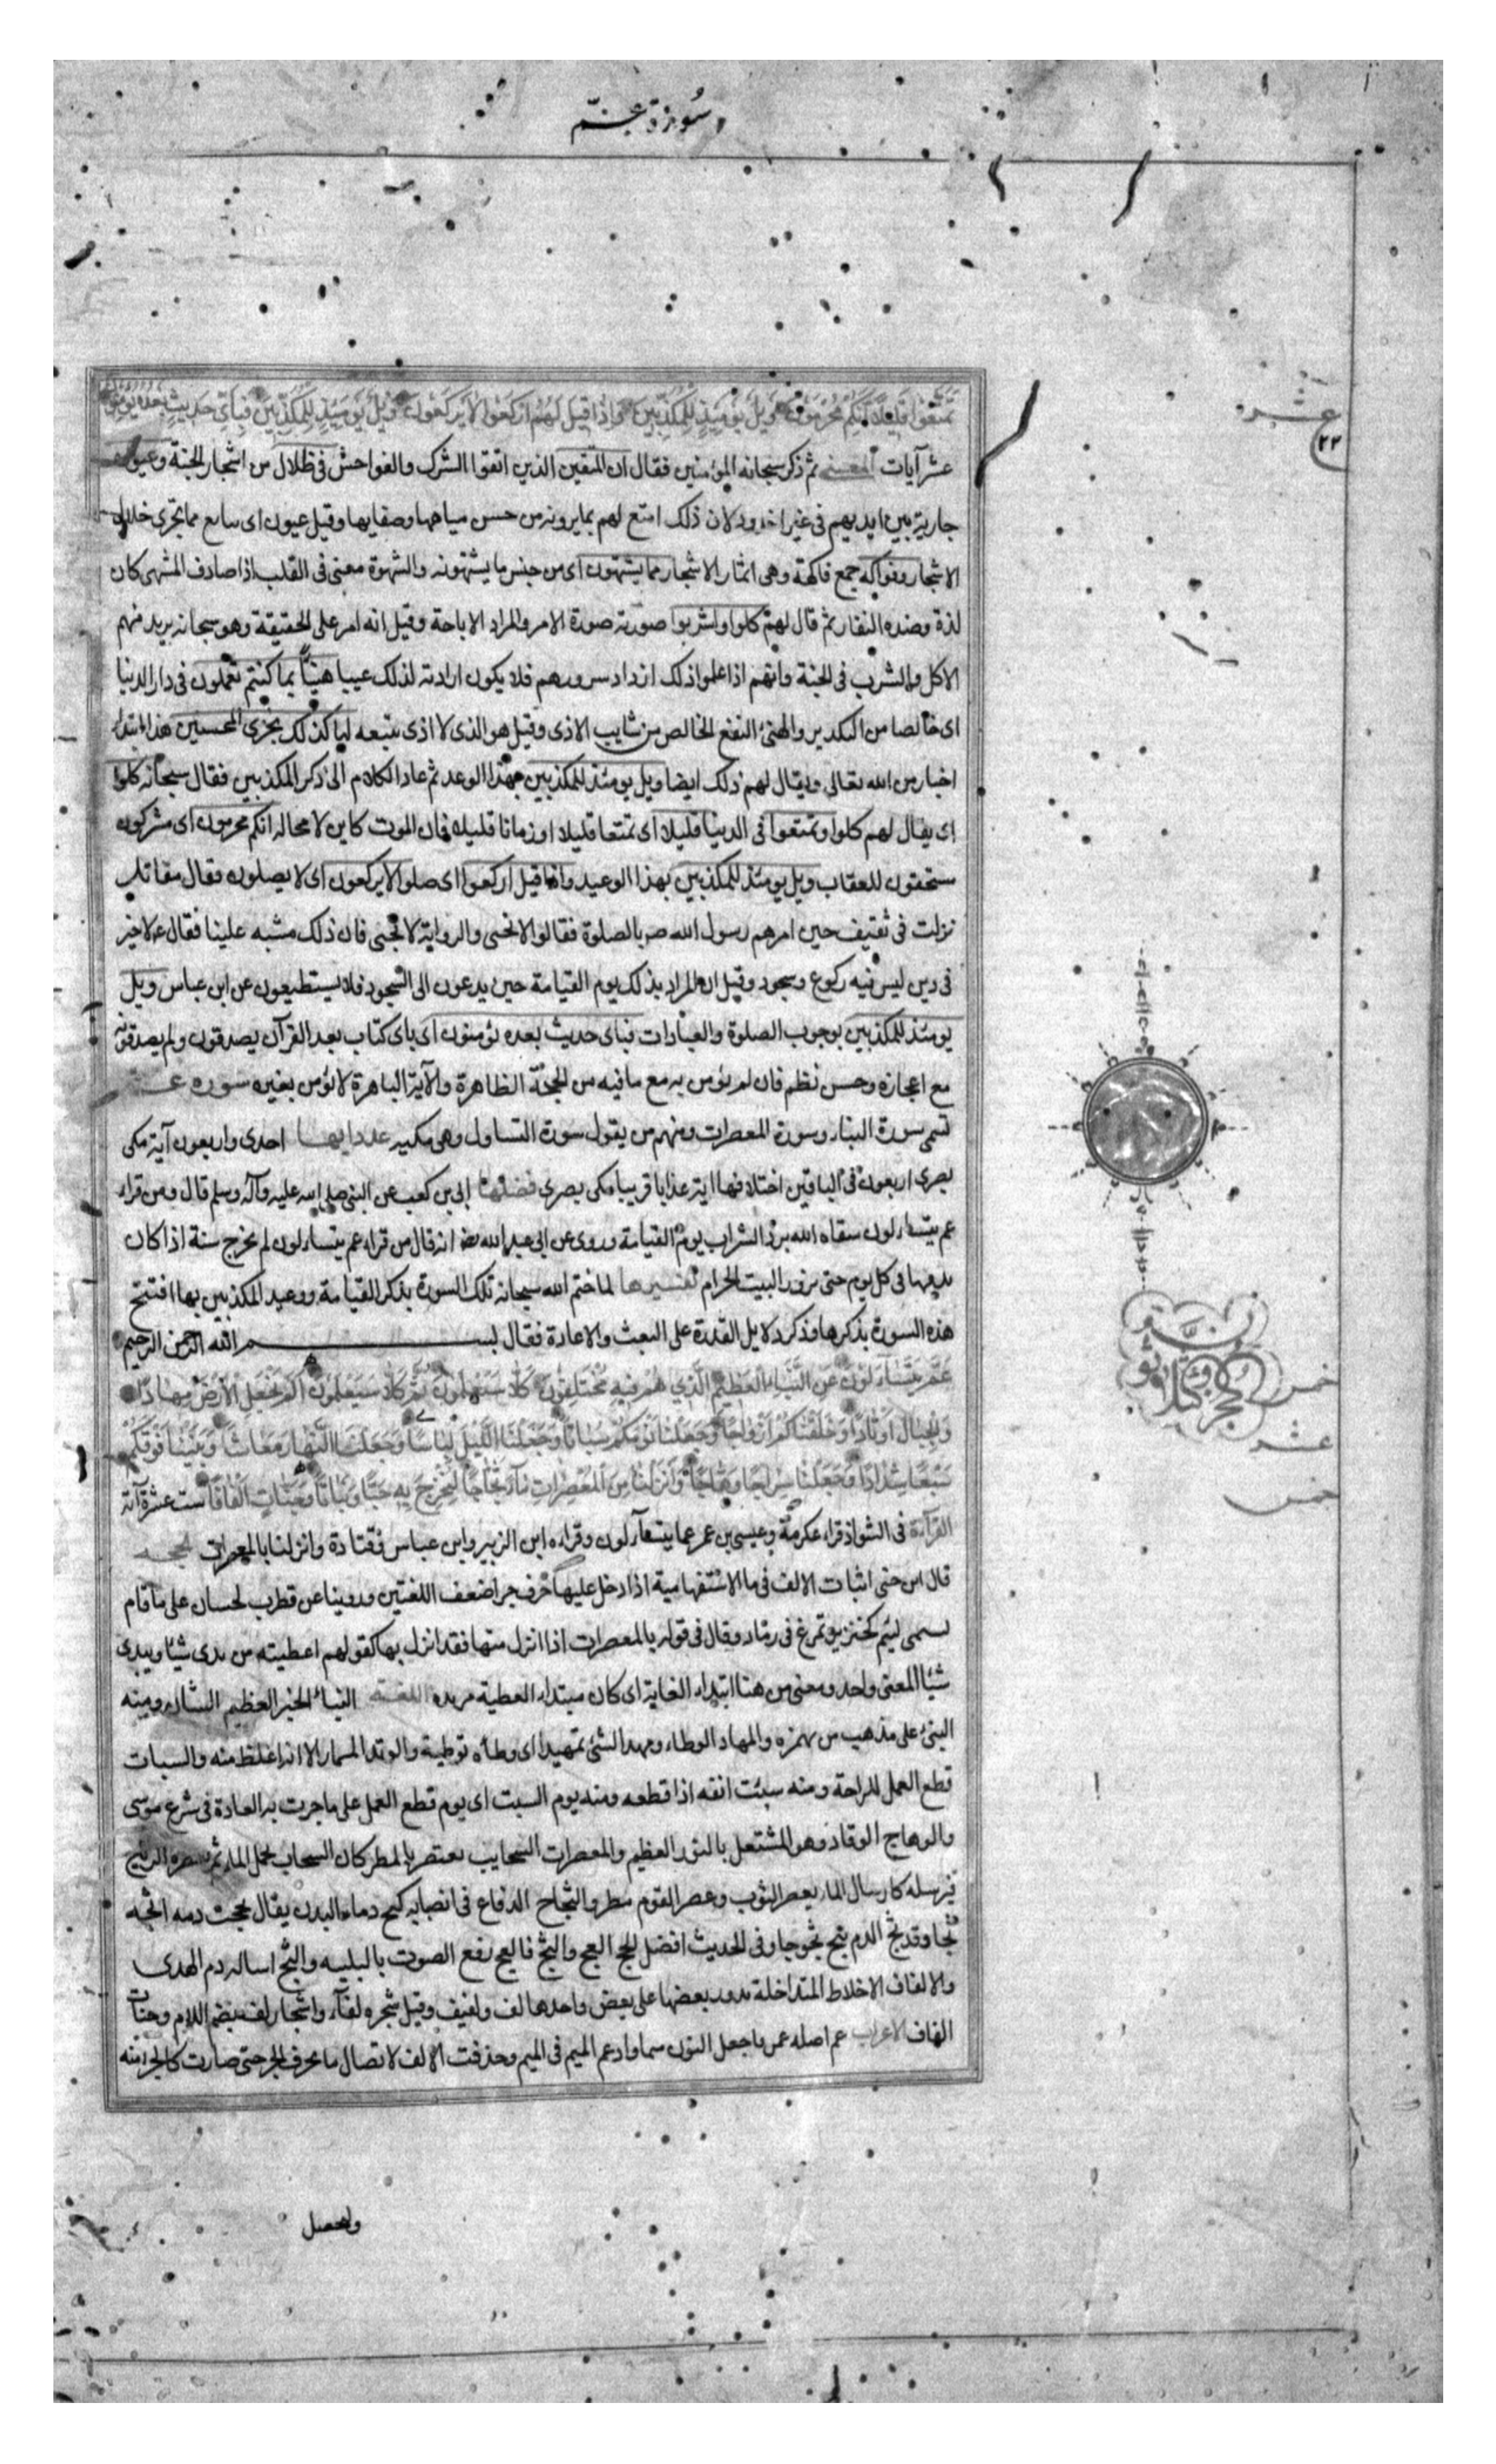 سورة عم
تمتعوا قليلا انكم مجرمون ويل يومئذ للمكذبين واذا قيل لهم اركعوا لا يركعون ويل يومئذ للمكذبين فباي حديث بعده يؤمنون
عشر
٢٢
عشر آيات المعنى ثم ذكر سبحانه المؤمنين فقال ان المتقين الذين اتقوا الشرك والفواحش في ظلال من اشجار الجنة وعيون
جارية بين ايديهم في غير اخدود لان ذلك امتع لهم بما يرونه من حسن مياهها وصفايها وقيل عيون اى ينابيع مما تجرى خلال
الاشجار وفواكه جمع فاكهة وهى اثمار الاشجار مما يشتهون اى من جنس ما يشتهونه والشهوة معنى فى القلب اذا صادف المشتهى كان
لذة وضده النفار ثم قال لهم كلوا واشربوا صورته صورة الامر والمراد الاباحة وقيل انه امر على الحقيقة وهو سبحانه يريد منهم
الاكل والشرب فى الجنة وانهم اذا علموا ذلك ازداد سرورهم فلا يكون ارادته لذلك عبثا هنيئا بما كنتم تعملون فى دار الدنيا
اى خالصا من التكدير والهنئ النفع الخالص من شايب الاذى وقيل هو الذى لا اذى يتبعه انا كذلك نجزى المحسنين هذا ابتداء
اخبار من الله تعالى ويقال لهم ذلك ايضا ويل يومئذ للمكذبين بهذا الوعد ثم عاد الكلام الى ذكر المكذبين فقال سبحانه كلوا
اى يقال لهم كلوا وتمتعوا فى الدنيا قليلا اى تمتعا قليلا او زمانا قليلا فان الموت كاين لا محالة انكم مجرمون اى مشركون
مستحقون للعقاب ويل يومئذ للمكذبين بهذا الوعيد واذا قيل اركعوا اى صلوا لا يركعون اى لا يصلون فقال مقاتل
نزلت فى ثقيف حين امرهم رسول الله ص بالصلوة فقالوا لا نحنى والرواية لا نجبى فان ذلك مشبه علينا فقال ع لا خير
فى دين ليس فيه ركوع وسجود وقيل ان المراد بذلك يوم القيامة حين يدعون الى السجود فلا يستطيعون عن ابن عباس ويل
يومئذ للمكذبين بوجوب الصلوة والعبادات فباى حديث بعده يؤمنون اى باى كتاب بعد القرآن يصدقون ولم يصدقوا به
مع اعجازه وحسن نظم فان لم يؤمن به مع ما فيه من الحجة الظاهرة والآية الباهرة لا يؤمن بغيره سورة عم
تسمى سورة النباء وسورة المعصرات ومنهم من يقول سورة التساول وهى مكية عدد ايها احدى واربعون آية مكى
بصرى اربعون فى الباقين اختلافها اية عذابا قريبا مكى بصرى فضلها ابى بن كعب عن النبى صلى الله عليه وآله وسلم قال ومن قراء
عم يتساءلون سقاه الله برد الشراب يوم القيامة وروى عن ابى عبد الله انه قال من قراء عم يتساءلون لم يخرج سنة اذا كان
يدمنها فى كل يوم حتى يزور البيت الحرام تفسيرها لما ختم الله سبحانه تلك السورة بذكر القيامة ووعيد المكذبين بها افتتح
هذه السورة بذكرها وذكر دلايل القدرة على البعث والاعادة فقال بسم الله الرحمن الرحيم
عم يتساءلون عن النباء العظيم الذي هم فيه مختلفون كلا سيعلمون ثم كلا سيعلمون الم نجعل الارض مهادا
خمس
والجبال اوتادا وخلقناكم ازواجا وجعلنا نومكم سباتا وجعلنا الليل لباسا وجعلنا النهار معاشا وبنينا فوقكم
عشر
سبعا شدادا وجعلنا سراجا وهاجا وانزلنا من المعصرات ماء ثجاجا لنخرج به حبا ونباتا وجنات الفافا ست عشرة آية
خمس
القرآءة فى الشواذ قراءة عكرمة وعيسى بن عمر عما يتساءلون وقراءه ابن الزبير وابن عباس وقتادة وانزلنا بالمعصرات الحجة
قال ابن جنى اثبات الالف فى ما الاستفهامية اذا دخل عليها حرف جر اضعف اللغتين وروينا عن قطرب لحسان على ما قام
يشتمنى لئيم كخنزير تمرغ فى رماد وقال فى قوله بالمعصرات اذا انزل منها فقد انزل بها كقولهم اعطيته من يدى شيئا وبيدى
شيئا المعنى واحد ومعنى من هنا ابتداء الغاية اى كان مبتداء العطية من يده اللغة النباء الخبر العظيم الشان ومنه
النبئ على مذهب من يهمزه والمهاد الوطاء ومهد الشئ تمهيدا اى وطأه توطية والوتد المسمار الا انه اغلظ منه والسبات
قطع العمل للراحة ومنه سبت انفه اذا قطعه ومنه يوم السبت اى يوم قطع العمل على ما جرت به العادة فى شرع موسى
والوهاج الوقاد وهو المشتعل بالنور العظيم والمعصرات السحايب تعتصر بالمطر كان السحاب يحمل الماء ثم تعصره الريح
فيرسله كارسال الماء بعصر الثوب وعصر القوم مطروا والثجاج الدفاع فى انصبابه كثج دماء البدن يقال ثججت دمه اثجه
ثجا وقد ثج الدم يثج ثجوجا وفى الحديث افضل الحج العج والثج فالعج رفع الصوت بالتلبية والثج اسالة دم الهدى
والالفاف الاخلاط المتداخلة يدور بعضها على بعض واحدها لف ولفيف وقيل شجرة لفاء واشجار لف بضم اللام وجنات
الفاف الاعراب عم اصله عن ما جعل النون ميما وادغم الميم فى الميم وحذفت الالف لاتصال ما بحرف الجر حتى صارت كالجزء منه
وليحصل